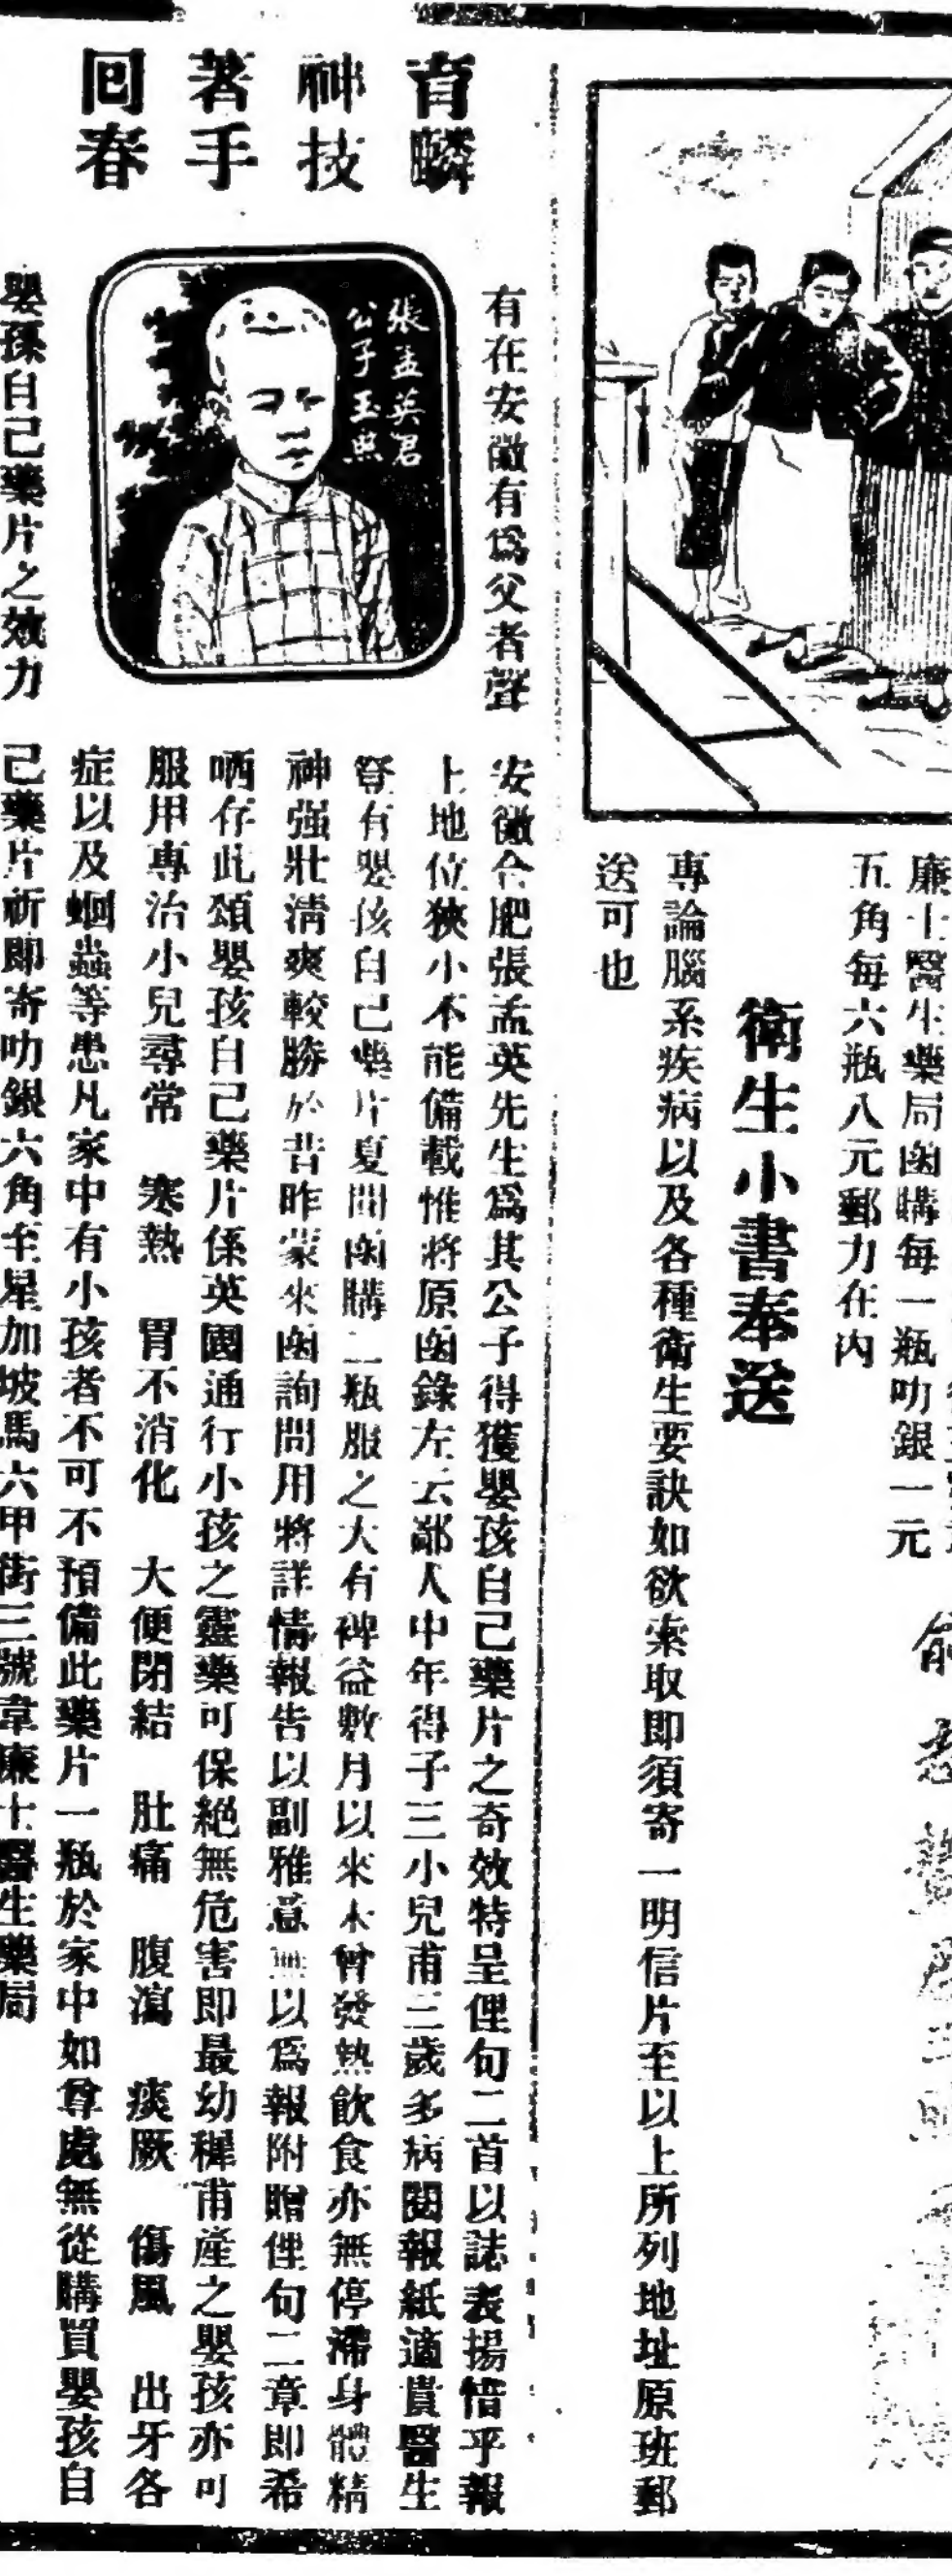 廉士醫生藥局函購每一瓶叻銀一元
五角每六瓶八元郵力在內
衛生小書奉送
專論腦系疾病以及各種衛生要訣如欲索取即須寄一明信片至以上所列地址原班郵
送可也
育麟
神技
著手
回春
有在安徽有為父者聲
張孟英君
公子玉照
嬰孩自己藥片之效力
安徽合肥張孟英先生為其公子得獲嬰孩自己藥片之奇效特呈俚句二首以誌表揚惜乎報
上地位狹小不能備載惟將原函錄左云鄙人中年得子三小兒甫三歲多病閱報紙適貴醫生
登有嬰孩自己藥片夏間函購二瓶服之大有裨益數月以來未曾發熱飲食亦無停滯身體精
神强壯清爽較勝於昔昨蒙來函詢問用將詳情報告以副雅意無以為報附贈俚句二章即希
哂存此頌嬰孩自己藥片係英國通行小孩之靈藥可保絕無危害即最幼穉甫產之嬰孩亦可
服用專治小兒尋常 寒熱 胃不消化 大便閉結 肚痛 腹瀉 痰厥 傷風 出牙各
症以及蛔蟲等患凡家中有小孩者不可不預備此藥片一瓶於家中如尊處無從購買嬰孩自
己藥片祈即寄叻銀六角至星加坡馬六甲街三號韋廉士醫生藥局